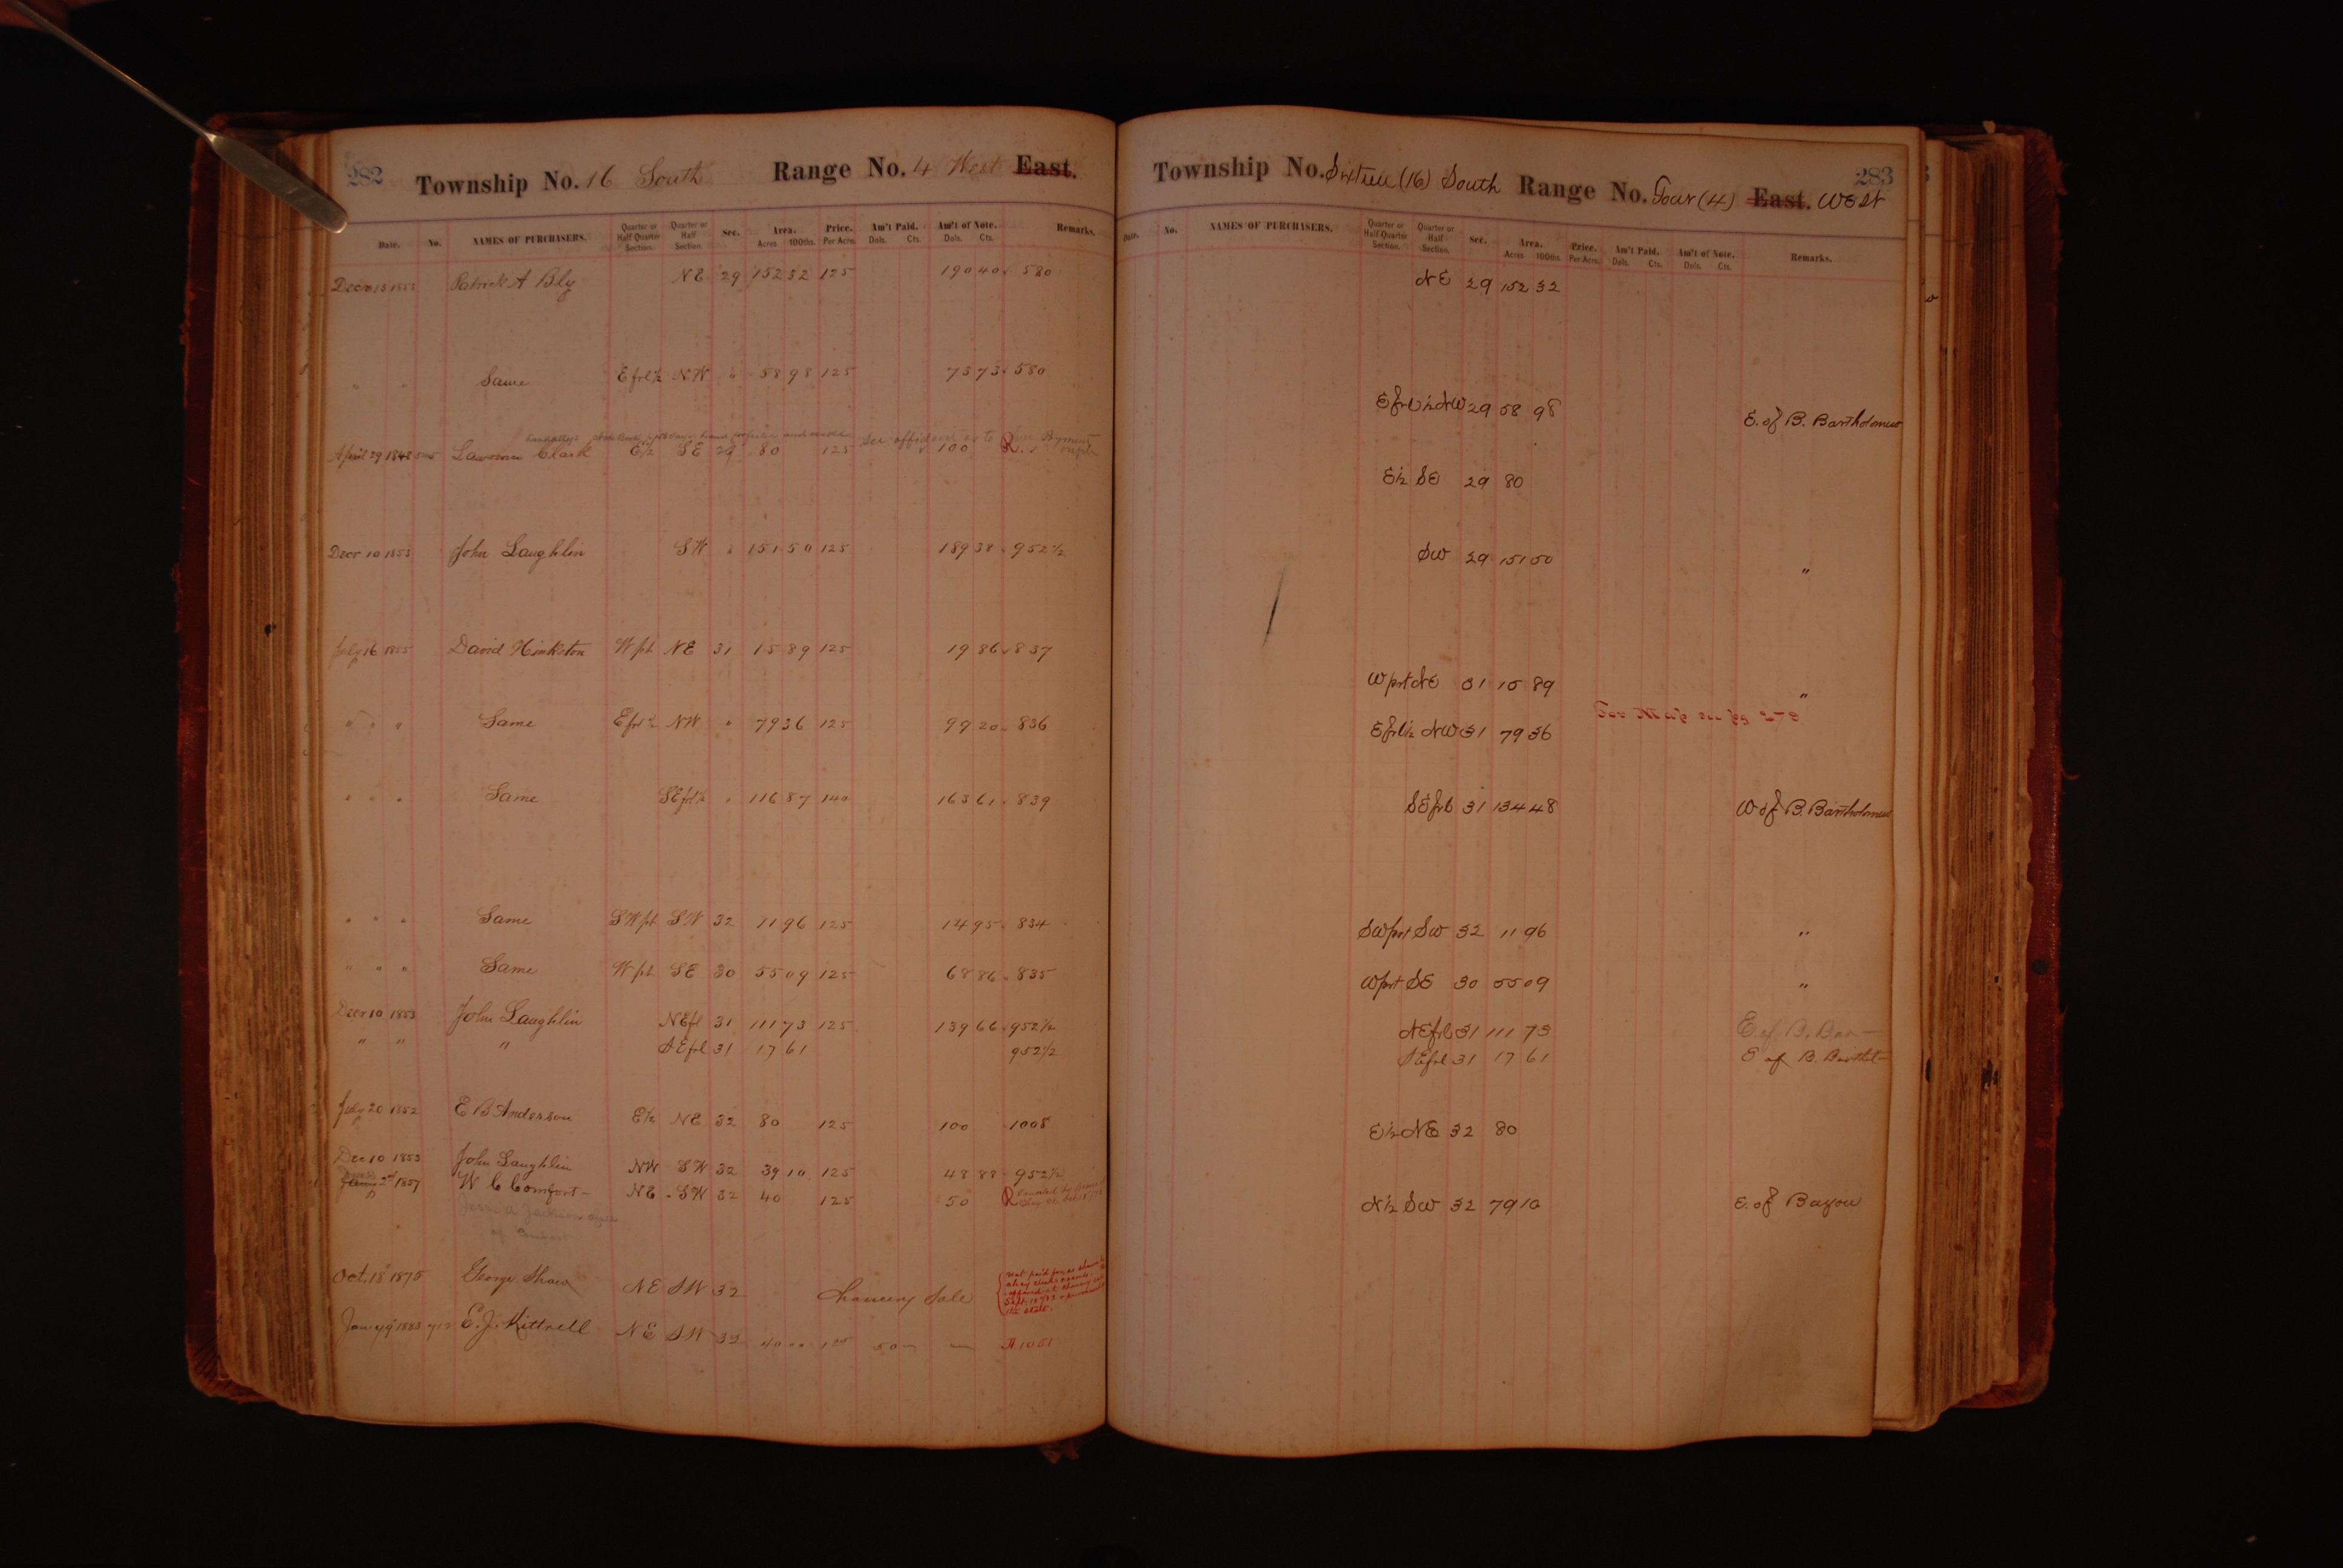 282
Township No. 16 South Range No. 4 West East.
Date. No. NAMES OF PURCHASERS. Quarter or Half Quarter Section. Quarter or Half Section. Sec. Area. Acres 100ths. Price. Per Acre. Am't Paid. Dols. Cts. Am't of Note. Dols. Cts. Remarks.
Decr 13 1853 Patrick A Bly NE 29 152 32 125 190 40 580
" " Same E frl ½ NW " 58 98 125 73 73 580
April 29 1848 Clark E½ SE 29 80 125 100 R.
Decr 10 1853 John Laughlin SW " 151 50 125 189 38 952½
July 16 1855 David Hinkston W pt NE 31 15 89 125 19 86 837
" " " Same E frl ½ NW " 79 36 125 99 20 836
" " " Same SE frl ½ " 116 87 140 163 61 839
" " " Same SW pt SW 32 11 96 125 14 95 834
" " " Same W pt SE 30 55 09 125 68 86 835
Decr 10 1853 John Laughlin NE fl 31 111 73 125 139 66 952½
" " " SE frl 31 17 61 952½
July 20 1852 E B Anderson E½ NE 32 80 125 100 1008
Dec 10 1853 John Laughlin NW SW 32 39 10 125 48 88 952½
1857 W C Comfort NE SW 32 40 125 50 R
Jackson
of Comfort
Oct. 18 1875 George Shaw NE SW 32 Chancery Sale
Jan'y 9 1883 712 E. J. Kittrell NE SW 32 40 00 1 25 50 — — A 1051
283
Township No. Sixteen (16) South Range No. Four (4) East. West
Date. No. NAMES OF PURCHASERS. Quarter or Half Quarter Section. Quarter or Half Section. Sec. Area. Acres 100ths. Price. Per Acre. Am't Paid. Dols. Cts. Am't of Note. Dols. Cts. Remarks.
NE 29 152 32
E frl ½ NW 29 58 98 E. of B. Bartholomew
E½ SE 29 80
SW 29 151 50 "
W part NE 31 15 89 "
For Map see pg 279
E frl ½ NW 31 79 36
SE frl 31 134 48 W of B. Bartholomew
SW part SW 32 11 96 "
W part SE 30 55 09 "
NE frl 31 111 73 E of B. Bar—
SE frl 31 17 61 E of B. Barthol—
E½ NE 32 80
N½ SW 32 79 10 E. of Bayou